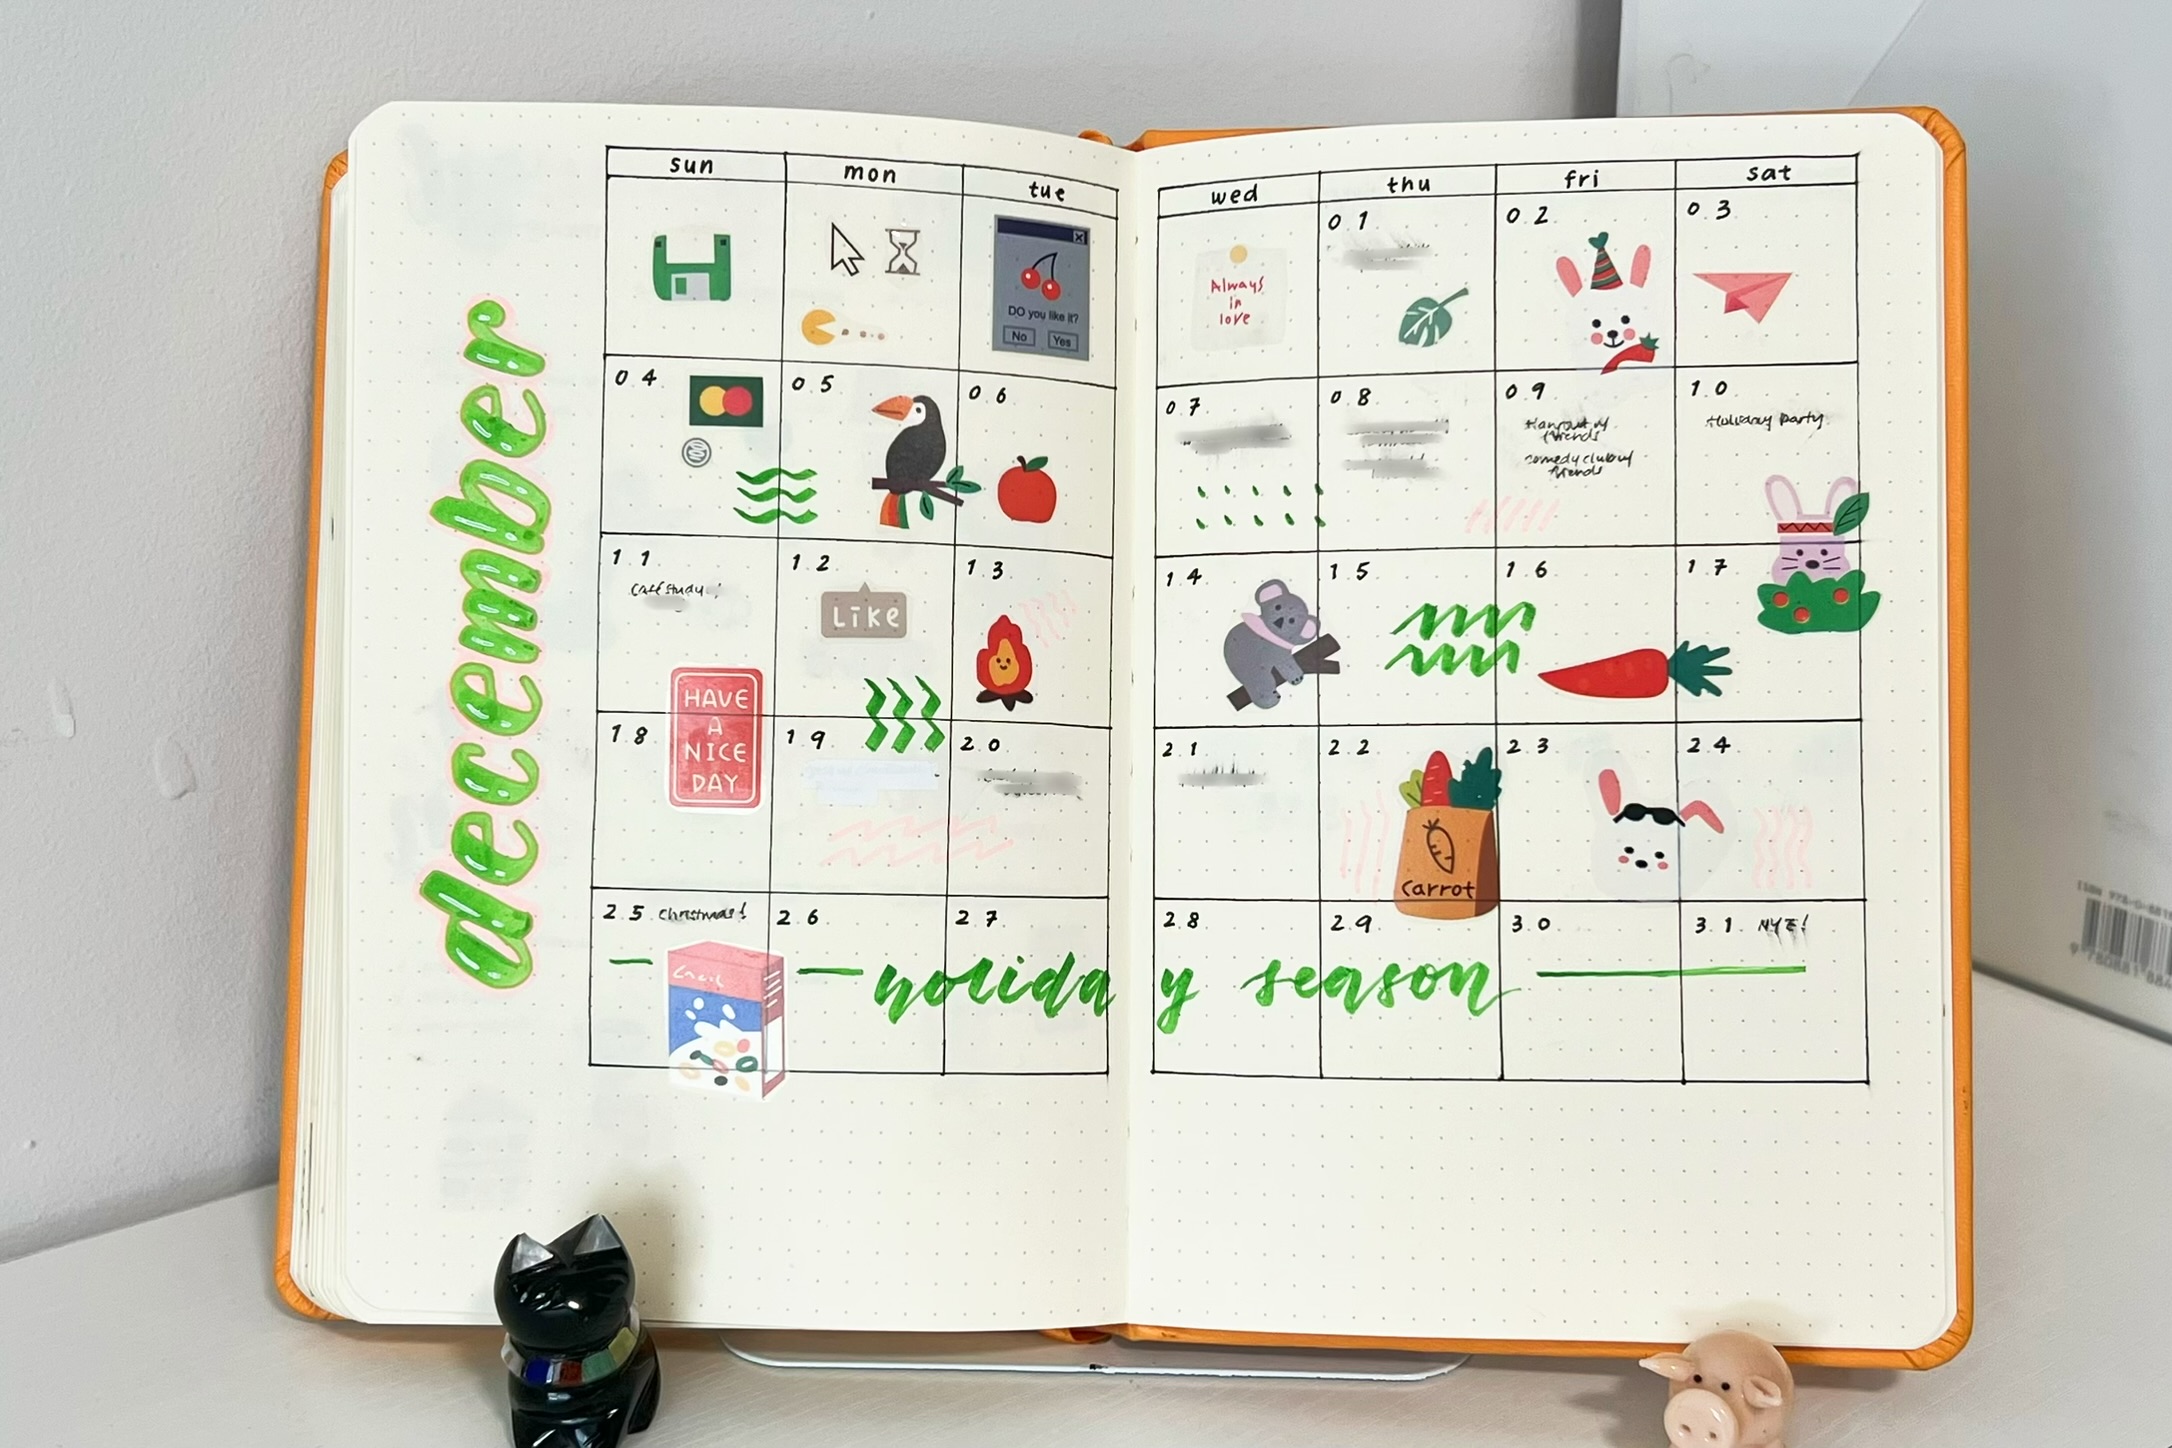 december
sun
mon
tue
wed
thu
fri
sat
DO you like it?
No
Yes
Always
in
love
01
02
03
04
05
06
07
08
09
Hangout w/
friends
comedy club w/
friends
10
Holiday party
11
Café study!
12
Like
13
14
15
16
17
18
HAVE
A
NICE
DAY
19
20
21
22
carrot
23
24
25 Christmas!
26
27
28
29
30
31 NYE!
holiday season